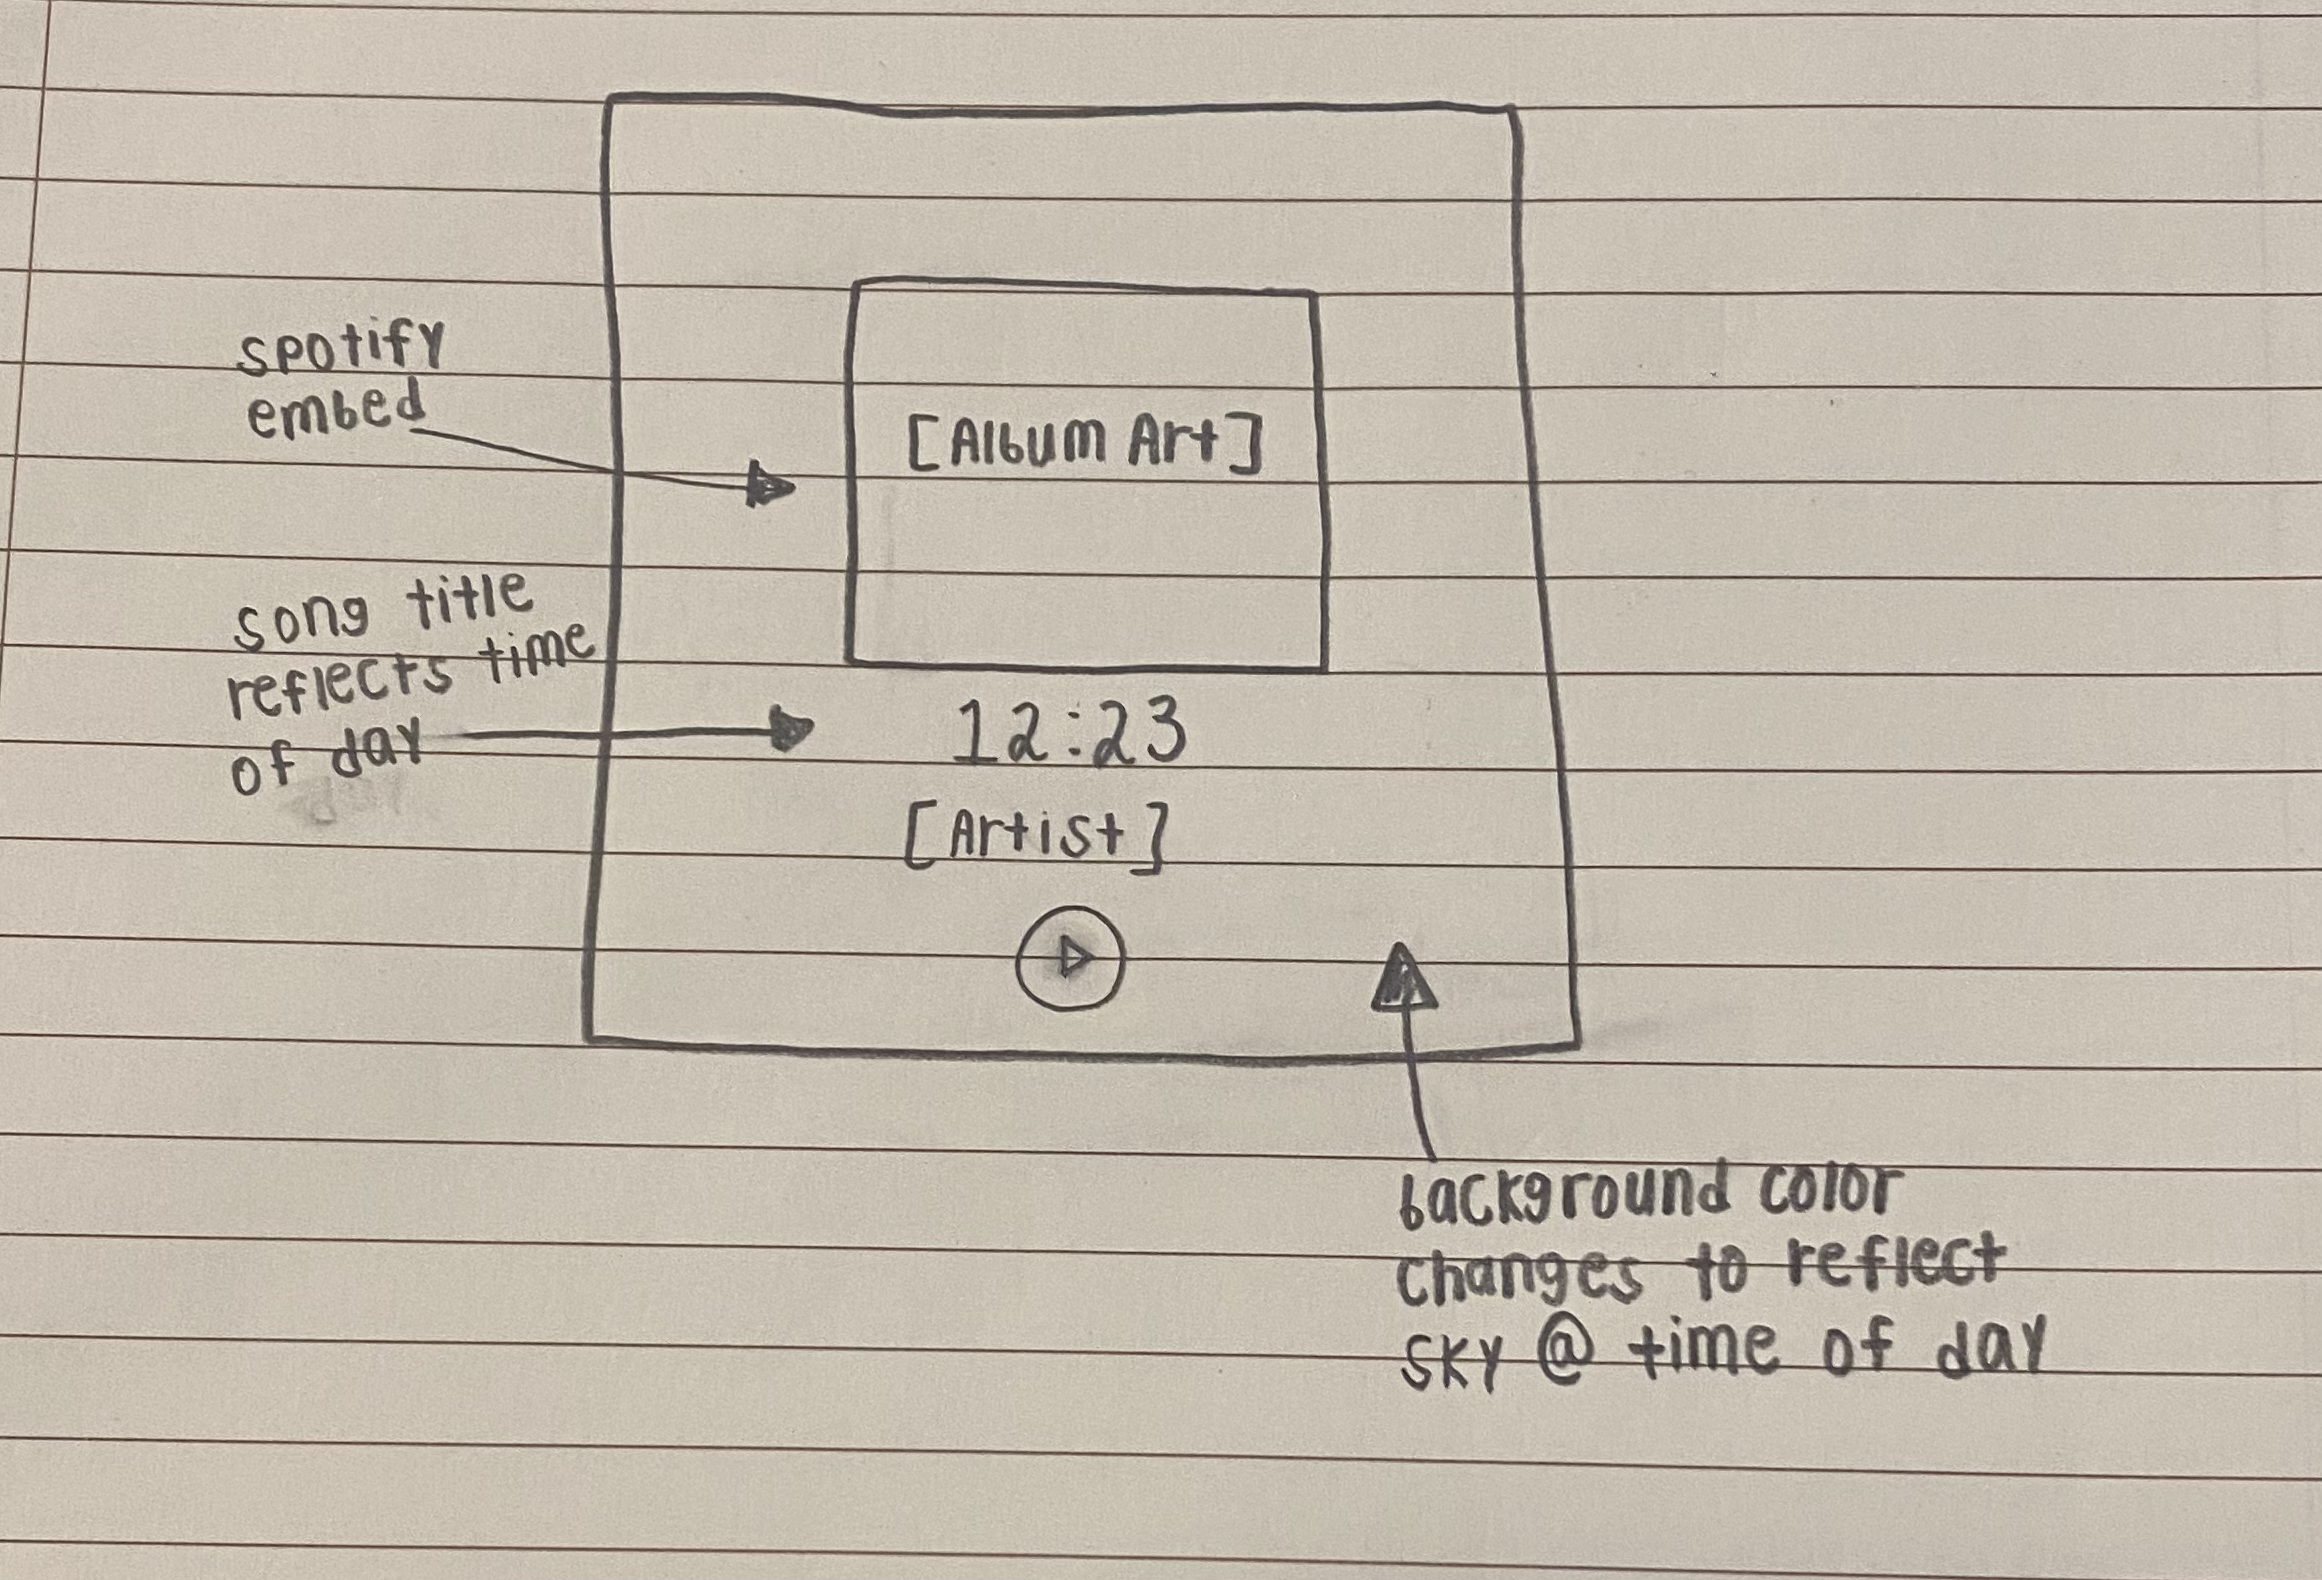 spotify
embed
[Album Art]
song title
reflects time
of day
12:23
[Artist]
background color
changes to reflect
sky @ time of day